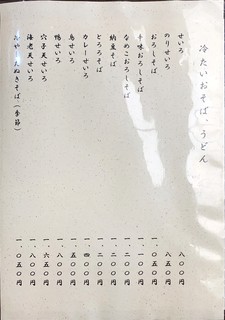 冷たいおそば、うどん
せいろ 八〇〇円
のりせいろ 八五〇円
おろしそば 一、〇五〇円
辛味おろしそば 一、一〇〇円
なめこおろしそば 一、二〇〇円
納豆そば 一、二〇〇円
とろろそば 一、二〇〇円
カレーせいろ 一、四〇〇円
鳥せいろ 一、五〇〇円
鴨せいろ 一、八〇〇円
穴子天せいろ 一、六五〇円
海老天せいろ 一、八〇〇円
ぬきそば（季節） 一、〇五〇円